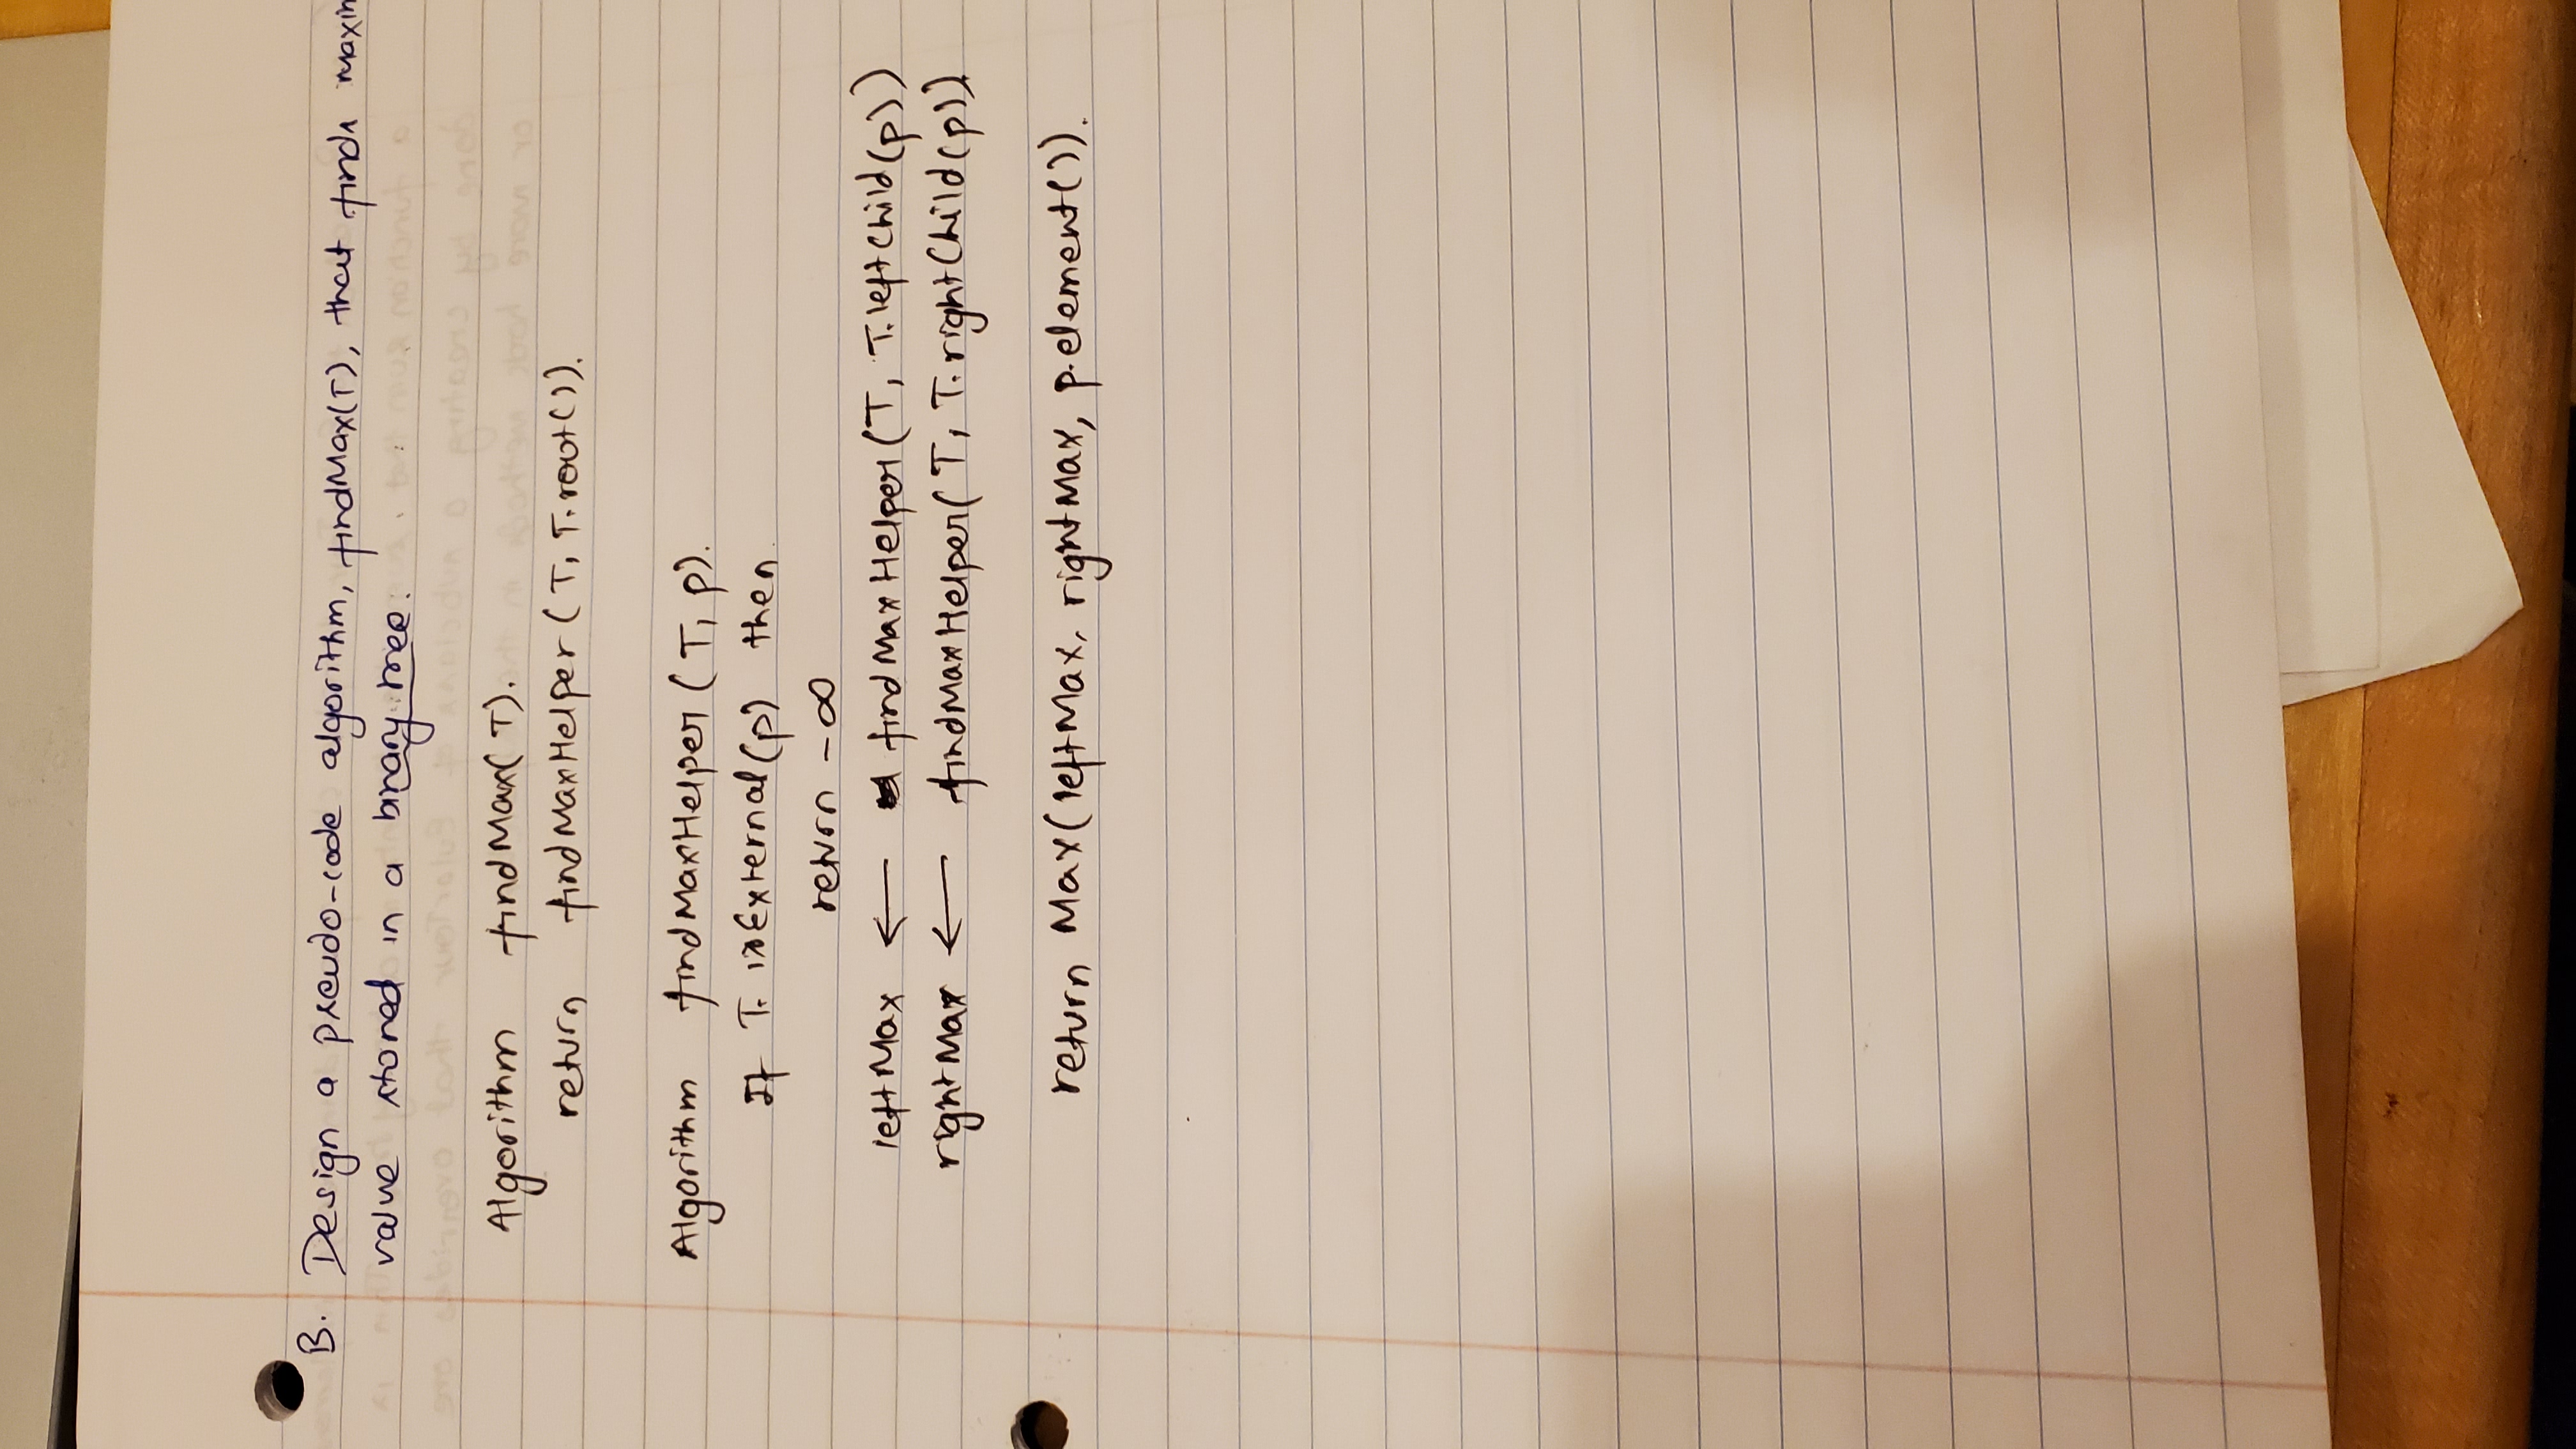 B. Design a pseudo-code algorithm, findMax(T), that finds maxim
value stored in a binary tree.
Algorithm findMax(T).
return findMaxHelper(T, T.root()).
Algorithm findMaxHelper(T, p).
If T.isExternal(p) then
return -∞
leftMax ← findMaxHelper(T, T.leftChild(p))
rightMax ← findMaxHelper(T, T.rightChild(p))
return Max(leftMax, rightMax, p.element()).